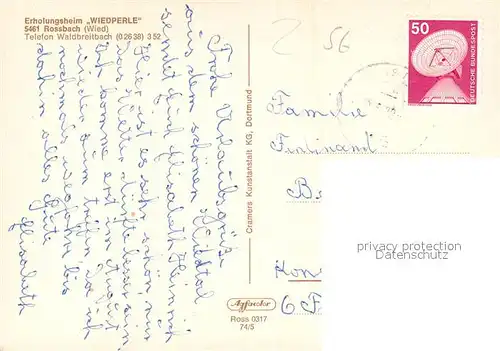 Erholungsheim „WIEDPERLE"
5461 Rossbach (Wied)
Telefon Waldbreitbach (02638) 352
Frohe Urlaubsgrüße
aus dem schönen Wiedtal
sendet Euch Elisabeth Heinrich
Hier ist es sehr schön nur
das Wetter dürfte besser sein
Ich komme erst im August
wieder zum
nochmals
dahin alles Gute
Elisabeth
Cramers Kunstanstalt KG, Dortmund
Agfacolor
Ross 0317
74/5
Z 56
50
DEUTSCHE BUNDESPOST
Familie
Ferdinand
privacy protection
Datenschutz
6